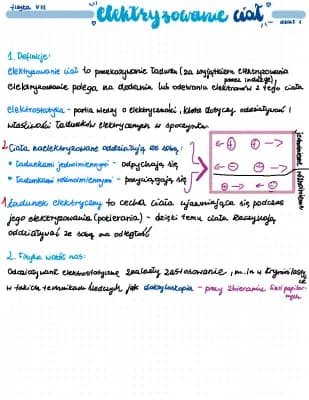 fizyka VIII
elektryzowanie ciał
dział 1
1. Definicje:
elektryzowanie ciał to przekazywanie ładunku (za wyjątkiem elektryzowania
przez indukcję),
elektryzowanie polega na dodaniu lub odebraniu elektronów z tego ciała
elektrostatyka - partia wiedzy o elektryczności, która dotyczy oddziaływań i
właściwości ładunków elektrycznych w spoczynku.
2. Ciała naelektryzowane oddziałują ze sobą:
* ładunkami jednoimiennymi - odpychają się
* ładunkami różnoimiennymi - przyciągają się
← + + →
← - - →
+ → ← -
jednoimienne
różnoimienne
1. Ładunek elektryczny to cecha ciała ujawniająca się podczas
jego elektryzowania (pocierania) - dzięki temu ciała zaczynają
oddziaływać ze sobą na odległość
2. Fizyka wokół nas:
Oddziaływania elektrostatyczne znalazły zastosowanie, m.in w kryminalistyce
w takich technikach śledczych jak daktyloskopia - przy zbieraniu linii papilarnych